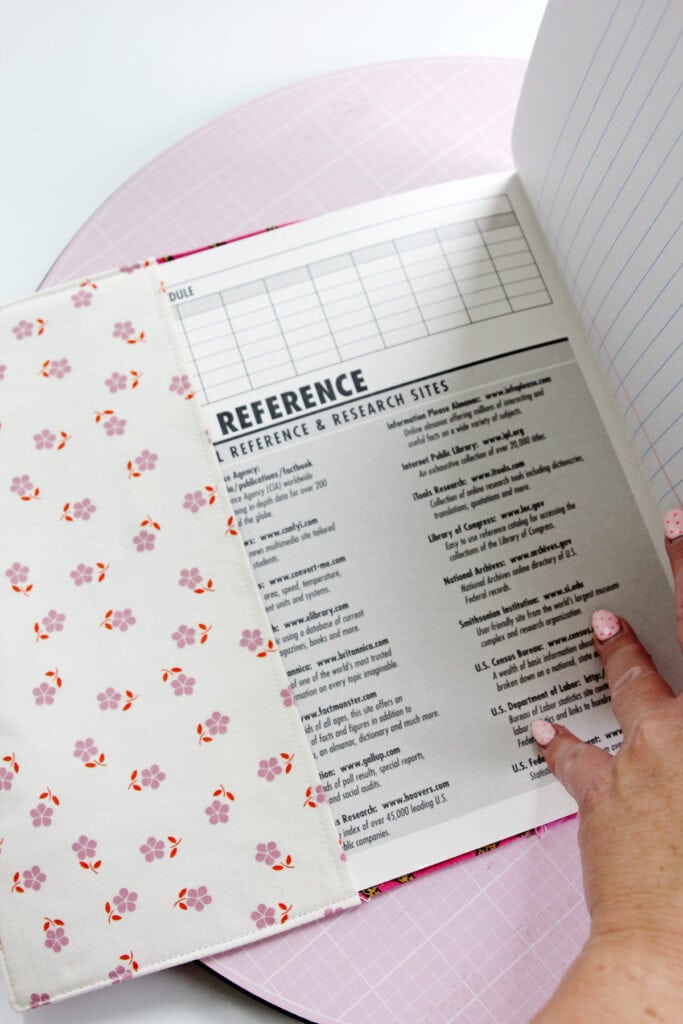 DULE
REFERENCE
L REFERENCE & RESEARCH SITES
ce Agency:
ia/publications/factbook
ence Agency (CIA) worldwide
ning in-depth data for over 200
d the globe.
ws: www.cnnfyi.com
news multimedia site tailored
students.
s: www.convert-me.com
area, speed, temperature,
ent units and systems.
www.elibrary.com
ic using a database of current
agazines, books and more.
annica: www.britannica.com
of one of the world's most trusted
rmation on every topic imaginable.
www.factmonster.com
nds of all ages, this site offers an
of facts and figures in addition to
s, an almanac, dictionary and much more.
tion: www.gallup.com
nds of poll results, special reports,
and social audits.
ss Research: www.hoovers.com
index of over 45,000 leading U.S.
blic companies.
Information Please Almanac: www.infoplease.com
Online almanac offering millions of interesting and
useful facts on a wide variety of subjects.
Internet Public Library: www.ipl.org
An exhaustive collection of over 20,000 titles.
iTools Research: www.itools.com
Collection of online research tools including dictionaries,
translations, quotations and more.
Library of Congress: www.loc.gov
Easy to use reference catalog for accessing the
collections of the Library of Congress.
National Archives: www.archives.gov
National Archives online directory of U.S.
Federal records.
Smithsonian Institution: www.si.edu
User friendly site from the world's largest museum
complex and research organization.
U.S. Census Bureau: www.census
A wealth of basic information about
broken down on a national, state
U.S. Department of Labor: http:/
Bureau of Labor statistics site con
labor and links to hundre
Fede
U.S. Fede www
Statistic